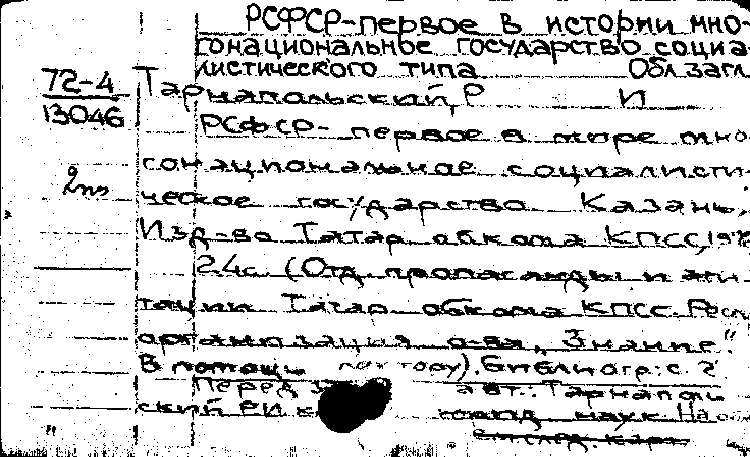 РСФСР-первое в истории мно-
гонациональное государство социа-
листического типа Обл. загл.
72-4 Тарнапольский, Р И
13046
РСФСР- первое в мире мно-
гонациональное социалисти-
2 ческое государство Казань,
Изд-во Татар. обкома КПСС, 1972
24с. (Отд. пропаганды и аги-
тации Татар обкома КПСС. Респ.
организация о-ва „Знание".
В помощь лектору). Библиогр.: с. 2
Перед авт.: Тарнаполь
ский РИ к юрид. наук На о
"